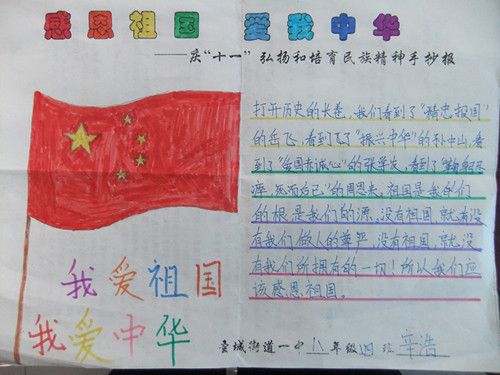 感恩祖国 爱我中华
——庆“十一”弘扬和培育民族精神手抄报
打开历史的长卷，我们看到了“精忠报国”
的岳飞，看到了“振兴中华”的孙中山，看
到了“爱国赤诚心”的张学友，看到了
”的周恩来，祖国是我们
的根是我们的源，没有祖国，就没
有我们做人的尊严，没有祖国，就没
有我们所拥有的一切！所以我们应
该感恩祖国。
我爱祖国
我爱中华
城街道一中 八年级 四 班 辛浩